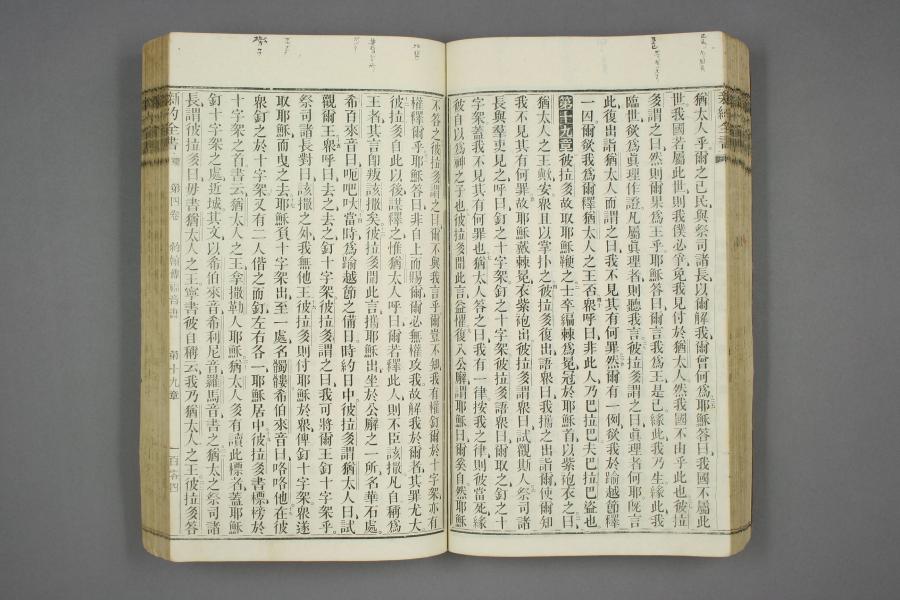 猶太人乎爾之已民與祭司諸長以爾解我爾曾何爲耶穌答曰我國不屬此
世我國若屬此世則我僕必爭免我見付於猶太人然我國不由乎此也彼拉
多謂之曰然則爾果爲王乎耶穌答曰爾言我爲王是已緣此我乃生緣此我
臨世欲爲眞理作證凡屬眞理者則聽我言彼拉多謂之曰眞理者何耶旣言
此復出詣猶太人而謂之曰我不見其有何罪然爾有一例欲我於踰越節釋
一囚爾欲我爲爾釋猶太人之王否衆呼曰非此人乃巴拉巴夫巴拉巴盜也
第十九章彼拉多故取耶穌鞭之士卒編棘爲冕冠於耶穌首以紫砲衣之曰
猶太人之王歟安衆且以掌扑之彼拉多復出語衆曰我攜之出詣爾使爾知
我不見其有何罪故耶穌戴棘冕衣紫砲出彼拉多謂衆曰試觀斯人祭司諸
長與羣吏見之呼曰釘之十字架釘之十字架彼拉多語衆曰爾取之釘之十
字架蓋我不見其有何罪也猶太人答之曰我有一律按我之律則彼當死緣
彼自以爲神之子也彼拉多聞此言益懼復入公廨謂耶穌曰爾奚自然耶穌
不答之彼拉多謂之曰爾不與我言乎爾豈不知我有權釘爾於十字架亦有
權釋爾乎耶穌答曰非自上而賜爾爾必無權攻我故解我於爾者其罪尤大
彼拉多自此以後謀釋之惟猶太人呼曰爾若釋此人則不臣該撒凡自稱爲
王者其言卽叛該撒矣彼拉多聞此言攜耶穌出坐於公廨之一所名華石處
希百來音曰呃吧大當時爲踰越節之備日時約日中彼拉多謂猶太人曰試
觀爾王衆呼曰去之去之釘十字架彼拉多謂之曰我可將爾王釘十字架乎
祭司諸長對曰該撒之外我無他王彼拉多則付耶穌於衆俾釘十字架衆遂
取耶穌而曳之去耶穌負十字架出至一處名髑髏希伯來音曰咯咯他在彼
衆釘之於十字架又有二人偕之而釘左右各一耶穌居中彼拉多書標榜於
十字架之首書云猶太人之王拿撒勒人耶穌猶太人多有讀此標名蓋耶穌
釘十字架之處近城其文以希伯來音希利尼音羅馬音書之猶太之祭司諸
長謂彼拉多曰毋書猶太人之王寧書彼自稱云我乃猶太人之王彼拉多答
新約全書 第四卷 約翰傳福音書 第十九章 一百零四